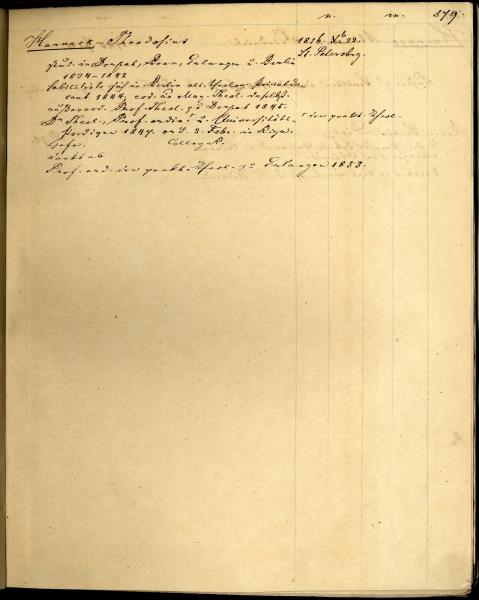 n. m. 579.
Harnack, Theodosius 1816. 22.
St. Petersburg.
stud. in Dorpat, Bonn, Erlangen u. Berlin
1834–1842
habilitirte sich in Berlin als theolog. Privatdo-
cent 1844, Mag. Theol. daselbst.
außerord. Prof. Theol. zu Dorpat 1845.
Dr. Theol., Prof. ordin. u. Universitäts- der prakt. Theol.
Prediger 1847. ord. 2. Febr. in Riga.
Hofr. Collegr.
Prof. ord. der prakt. Theol. zu Erlangen 1853.